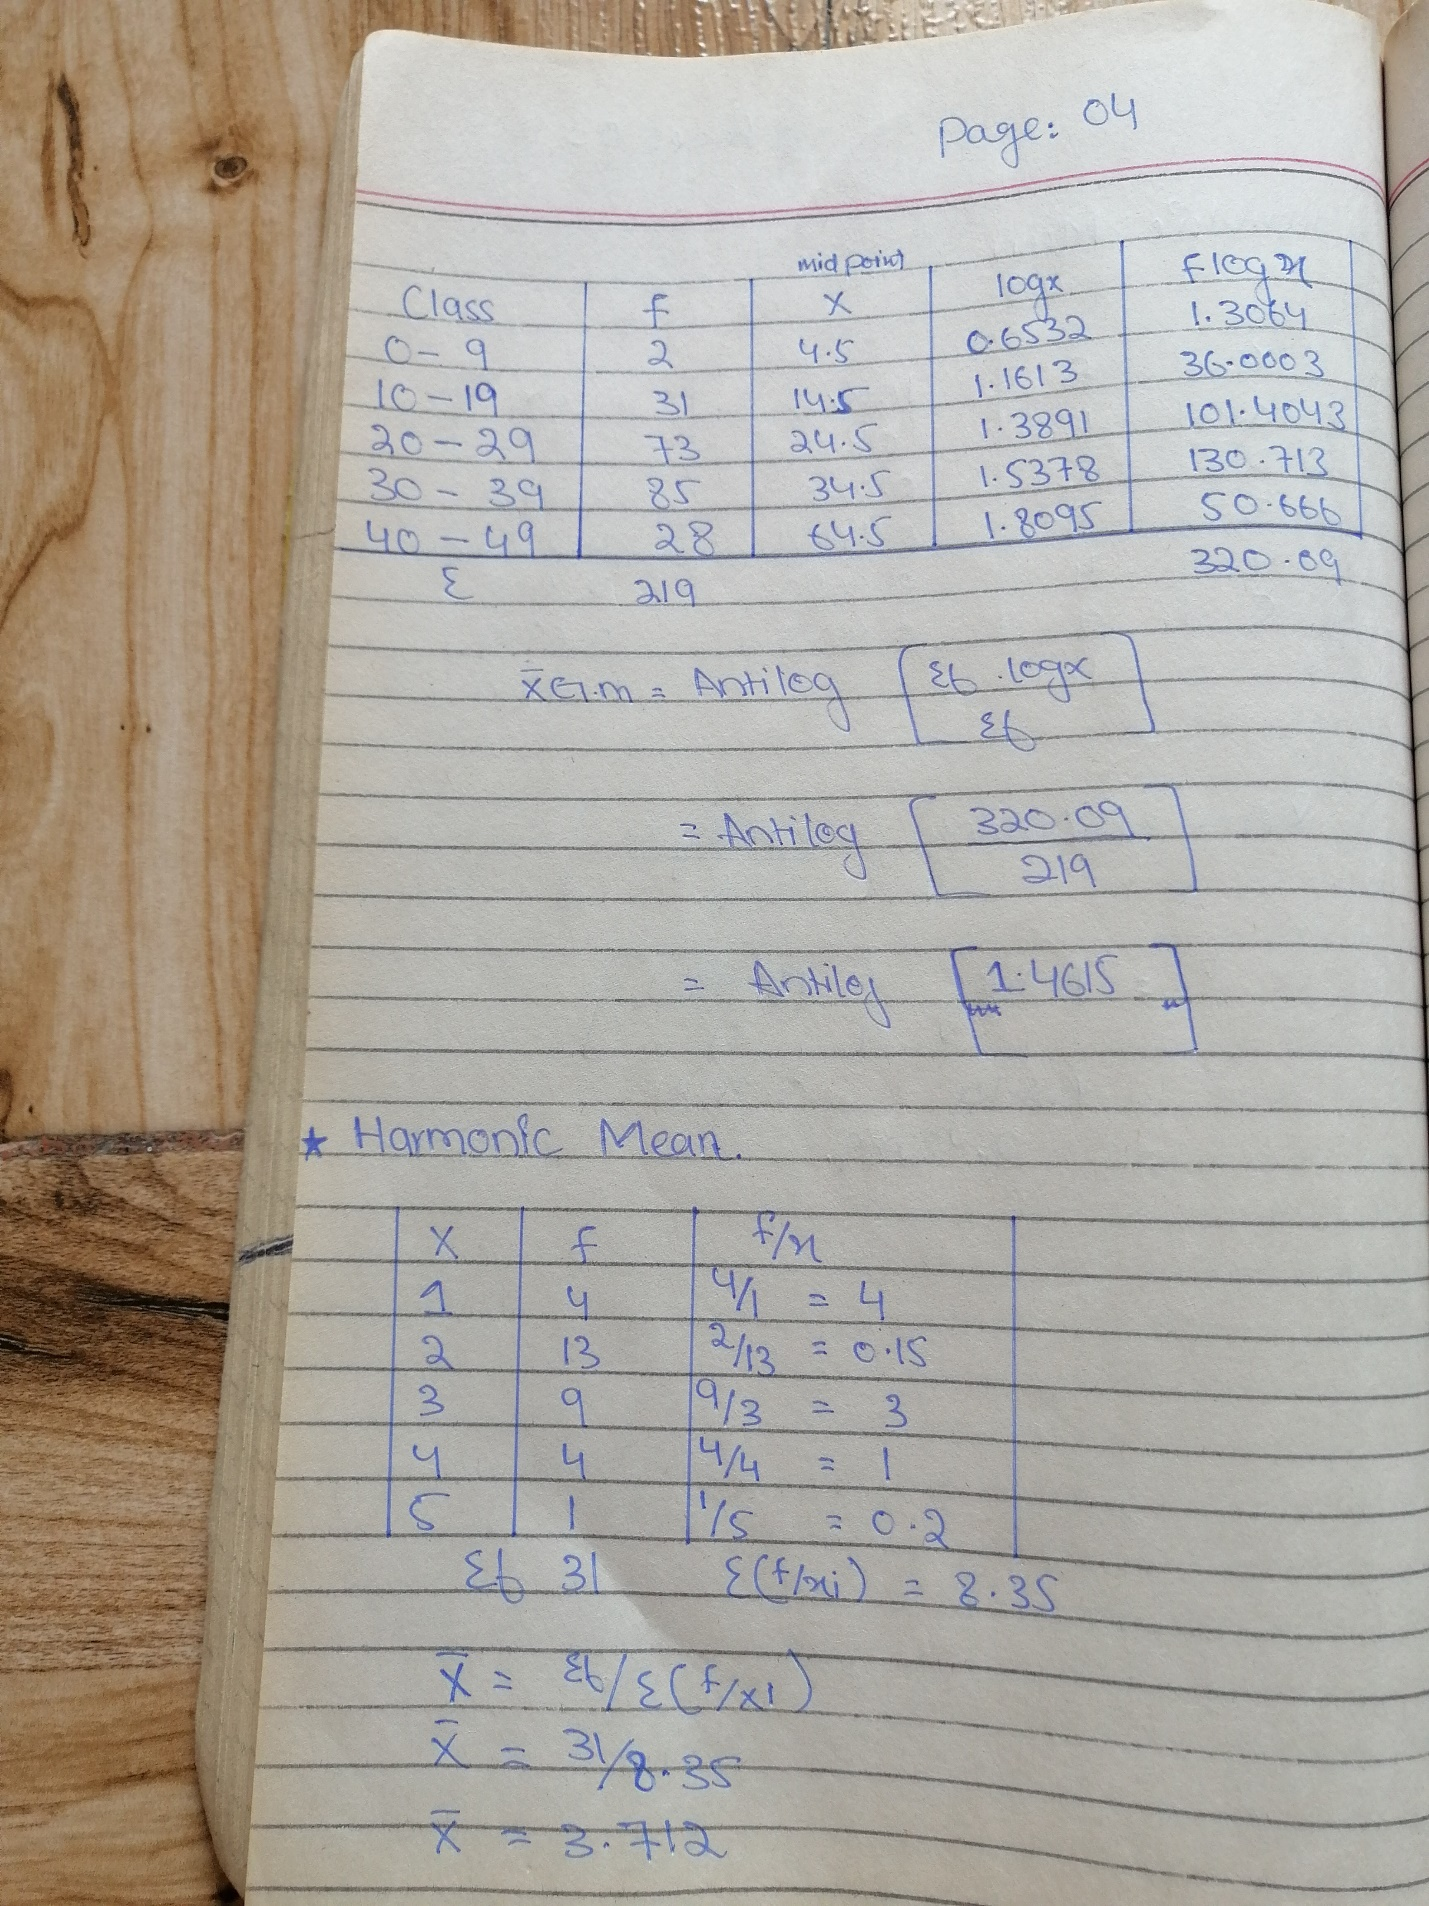 Page: 04
mid point
Class f X logx flogx
0-9 2 4.5 0.6532 1.3064
10-19 31 14.5 1.1613 36.0003
20-29 73 24.5 1.3891 101.4043
30-39 85 34.5 1.5378 130.713
40-49 28 64.5 1.8095 50.666
Σ 219 320.09
x̄G.m = Antilog [Σf.logx
Σf]
= Antilog [320.09
219]
= Antilog [1.4615]
★ Harmonic Mean.
X f f/x
1 4 4/1 = 4
2 13 2/13 = 0.15
3 9 9/3 = 3
4 4 4/4 = 1
5 1 1/5 = 0.2
Σf 31 Σ(f/xi) = 8.35
X̄ = Σf/Σ(f/x1)
X̄ = 31/8.35
X̄ = 3.712